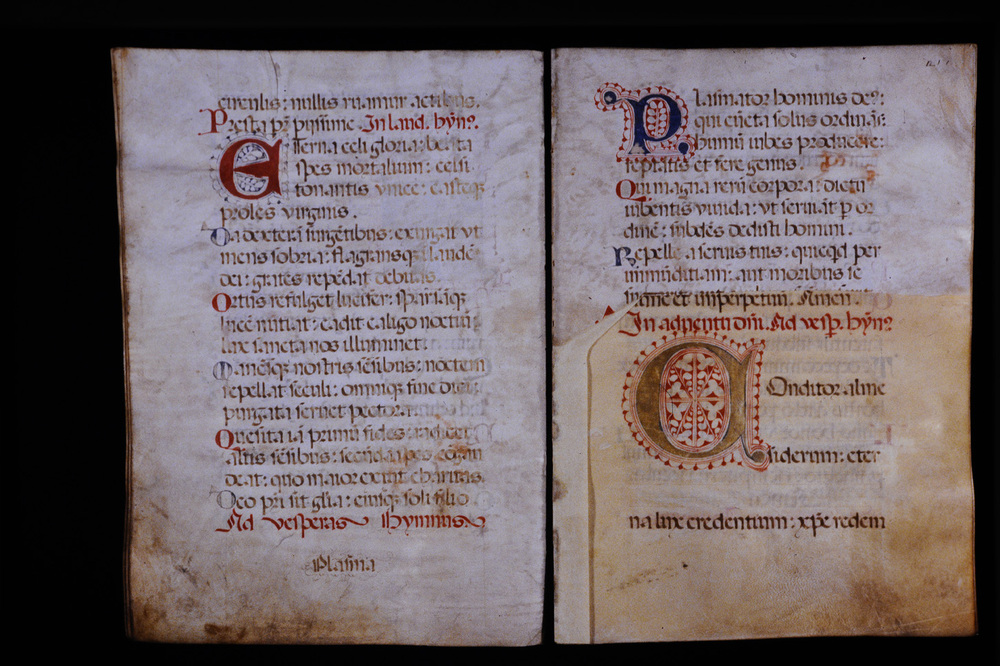 crucnlis: nullis ruamur actibus.
Presta pr̄ pijssime. In laud. hyn̄ꝰ.
Eterna celi gloria: beata
spes mortalium: celsi
tonantis unice: casteqꝫ
proles virginis.
Da dexterā surgētibus: exurgat ut
mens sobria: flagransqꝫ ī laudē
dei: grates repēdat debitas.
Ortus refulget lucifer: sparsāqꝫ
lucē nūtiat: cadit caligo noctiū:
lux sancta nos illuminet.
Manēsqꝫ nostris sēsibus: noctem
repellat seculi: omniqꝫ fine diei:
purgata seruet pectora.
Quesita iā primū fides: radicet
altis sēsibus: secūda spes cōgau
deat: quo maior exstat charitas.
Deo pr̄i sit gl̄ia: eiusqꝫ soli filio
Ad vesperas Hymnus
Plasma
Plasmator hominis deꝰ:
qui cūcta solus ordinās:
humū iubes producere:
reptatis et fere genus.
Qui magna rerū corpora: dictu
iubentis viuida: vt seruiāt p or
dinē: subdēs dedisti homini.
Repelle a seruis tuis: quicqd per
immūditiam: aut moribus se
In aduentu dn̄i. Ad vesp. hyn̄ꝰ
Conditor alme
siderum: eter
na lux credentium: xp̄e redem